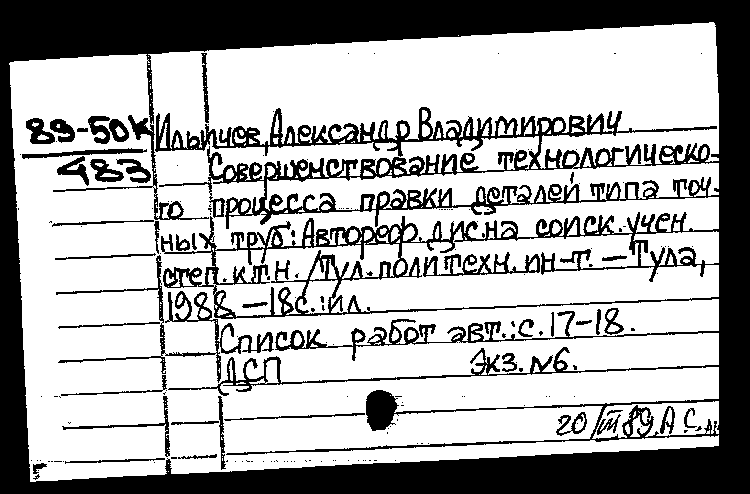 89-50к Ильичев, Александр Владимирович.
483 Совершенствование технологическо-
го процесса правки деталей типа точ-
ных труб: Автореф. дис. на соиск. учен.
степ. к.т.н. /Тул. политехн. ин-т. — Тула,
1988 — 18с.: ил.
Список работ авт.: с. 17-18.
ДСП Экз. №6.
20/III 89. А С.